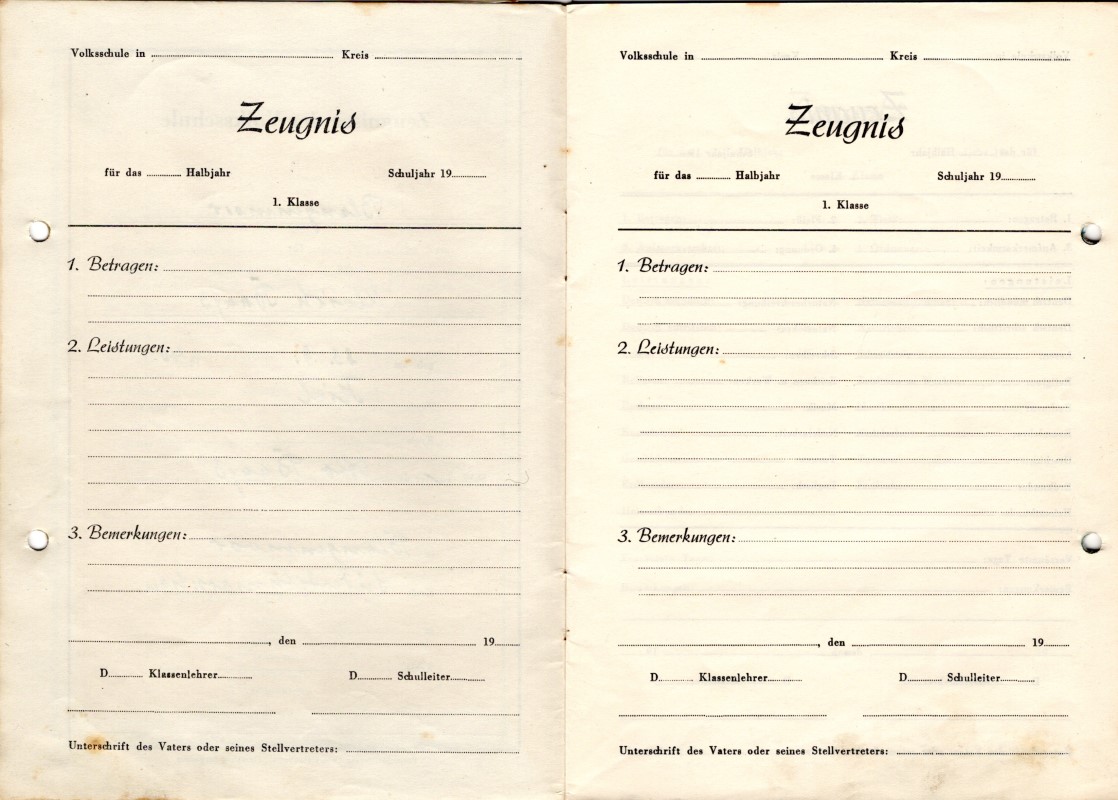 Volksschule in ........ Kreis ........
Zeugnis
für das ........ Halbjahr Schuljahr 19........
1. Klasse
1. Betragen:
2. Leistungen:
3. Bemerkungen:
........, den ........ 19........
D........ Klassenlehrer........ D........ Schulleiter........
Unterschrift des Vaters oder seines Stellvertreters:
Volksschule in ........ Kreis ........
Zeugnis
für das ........ Halbjahr Schuljahr 19........
1. Klasse
1. Betragen:
2. Leistungen:
3. Bemerkungen:
........, den ........ 19........
D........ Klassenlehrer........ D........ Schulleiter........
Unterschrift des Vaters oder seines Stellvertreters: